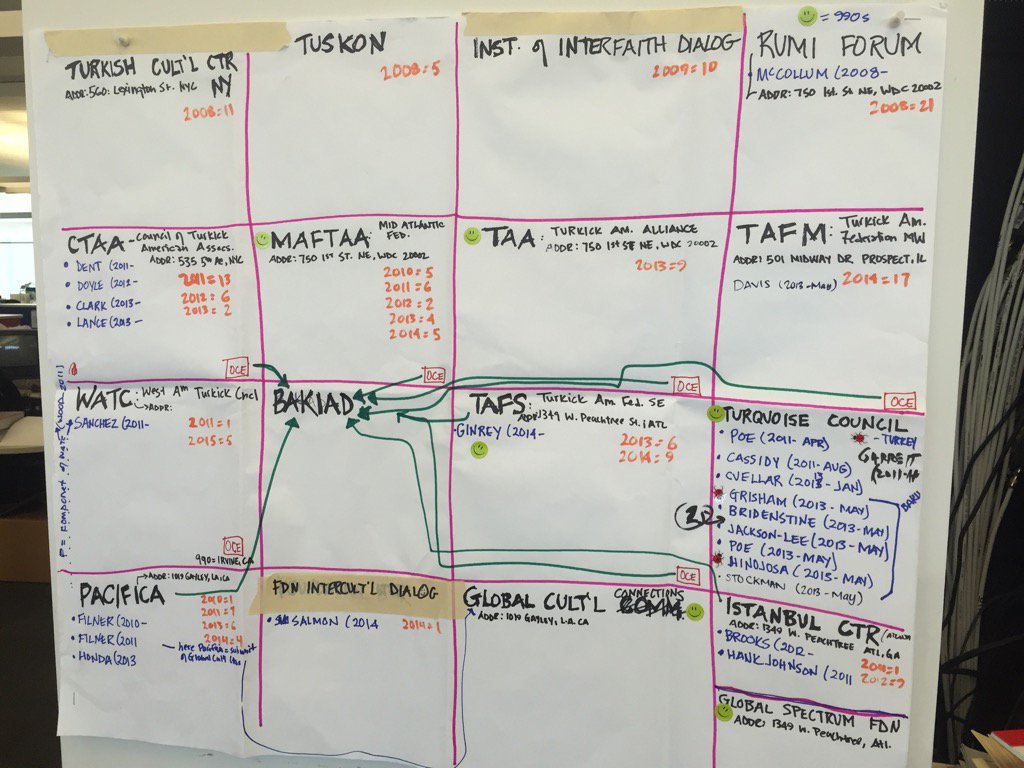 = 990s
TURKISH CULT'L CTR
NY
ADDR: 560: Lexington St. NYC
2008=11
TUSKON
2008=5
INST. of INTERFAITH DIALOG
2009=10
RUMI FORUM
McCOLLUM (2008-
ADDR: 750 1st. St NE, WDC 20002
2008=21
CTAA - Council of Turkick
American Assocs.
ADDR: 535 5th Ave, NYC
• DENT (2011-
• DOYLE (2012-
• CLARK (2013-
• LANCE (2013-
2011=13
2012=6
2013=2
MAFTAA: MID ATLANTIC
FED.
ADDR: 750 1ST ST. NE, WDC 20002
2010=5
2011=6
2012=2
2013=4
2014=5
TAA: TURKICK AM. ALLIANCE
ADDR: 750 1st ST NE, WDC 20002
2013=9
TAFM: Turkick Am.
Federation MW
ADDR: 501 MIDWAY DR. PROSPECT, IL
DAVIS (2013-MAY)
2014=17
OCE
OCE
OCE
OCE
WATC: West Am Turkick Cncl
ADDR:
SANCHEZ (2011-
2011=1
2015=5
OCE
990=IRVINE, CA
BAKIAD
TAFS: Turkick Am Fed. SE
ADDR 1349 W. Peachtree St. ATL
• GINREY (2014-
2013=6
2014=9
OCE
TURQUOISE COUNCIL
- TURKEY
GARRETT
• POE (2011-APR)
• CASSIDY (2011-AUG)
• CUELLAR (2013-JAN)
• GRISHAM (2013-MAY)
• BRIDENSTINE (2013-MAY)
• JACKSON-LEE (2013-MAY)
• POE (2013-MAY)
• HINOJOSA (2013-MAY)
• STOCKMAN (2013-MAY)
BAKU
PACIFICA
ADDR: 1019 GAYLEY, LA, CA
• FILNER (2010-
• FILNER (2011
• HONDA (2013
2010=1
2011=7
2013=6
2014=4
FDN INTERCULT'L DIALOG
• SALMON (2014
2014=1
GLOBAL CULT'L CONNECTIONS
ADDR: 1019 GAYLEY, L.A. CA
ISTANBUL CTR
ADDR: 1349 W. PEACHTREE
ATL, GA
• BROOKS (2012-
• HANK JOHNSON (2011
2012=9
GLOBAL SPECTRUM FDN
ADDR: 1349 W. Peachtree, Atl.